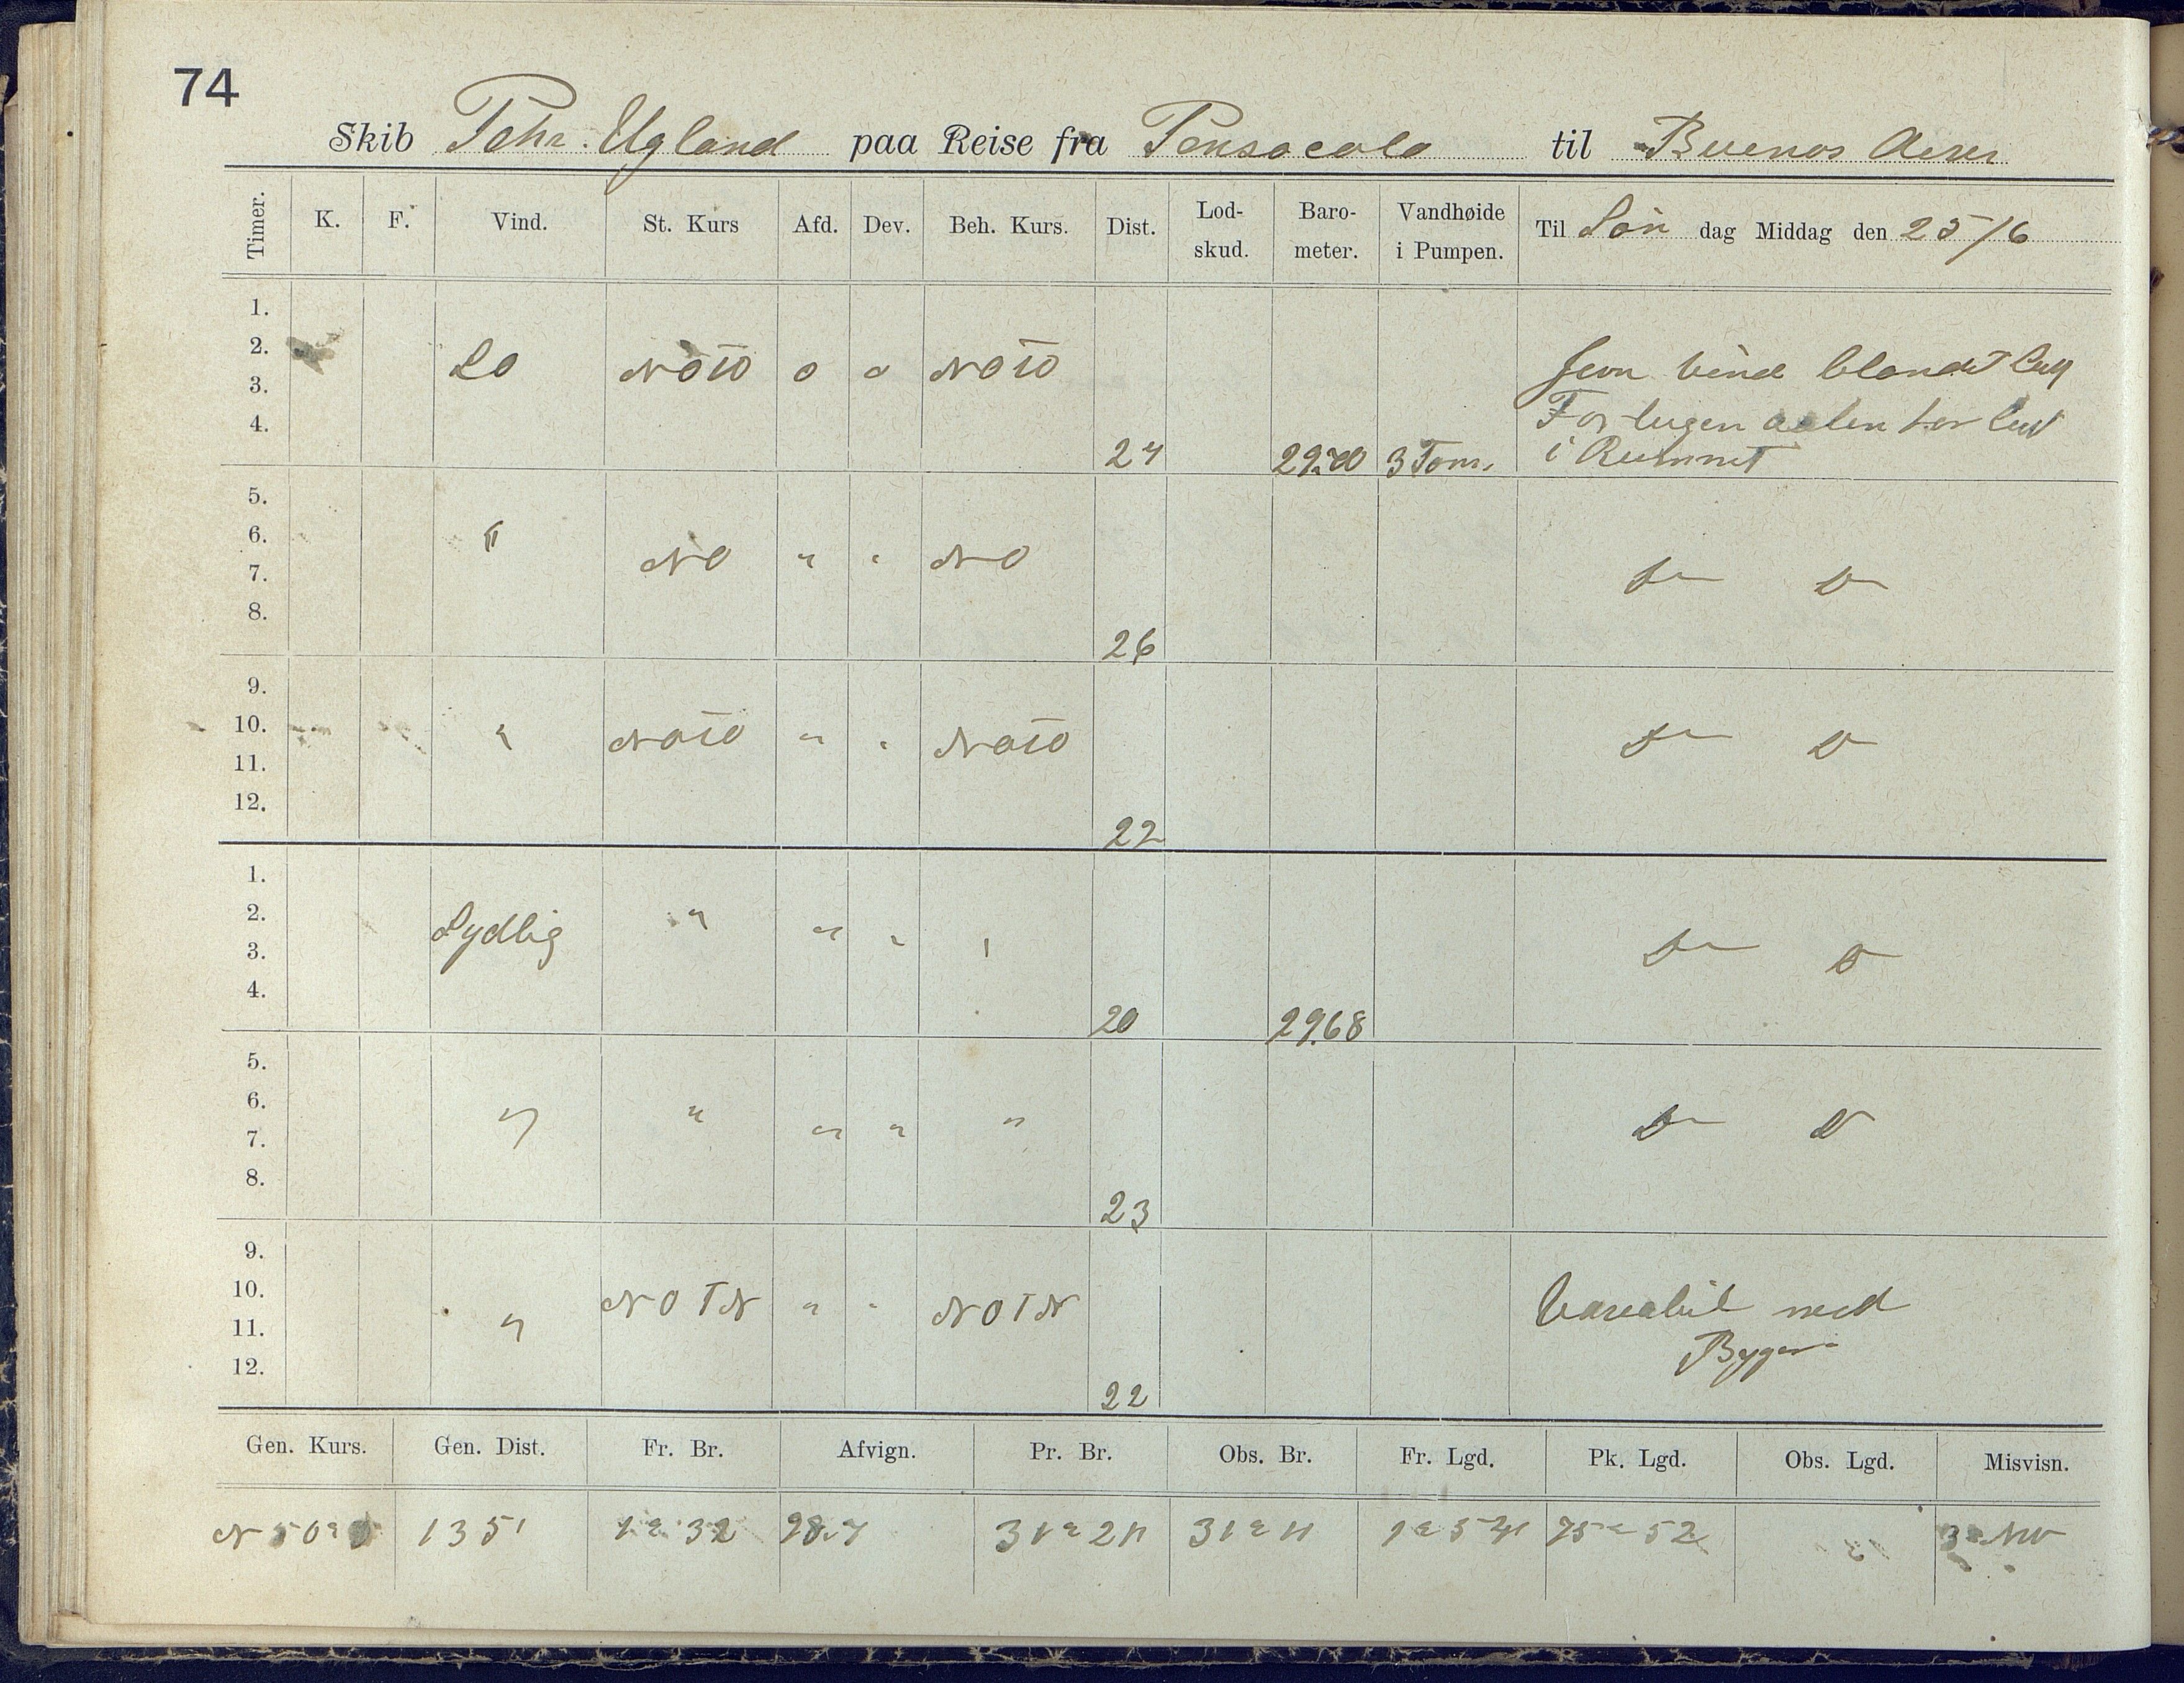 74
Skib Tehr. Ugland paa Reise fra Pensacola til Buenos Aires
Timer. K. F. Vind. St. Kurs Afd. Dev. Beh. Kurs. Dist. Lod-skud. Baro-meter. Vandhøide i Pumpen. Til Søn dag Middag den 25/6
1.
2.
3. SO NOTO 0 0 NOTO Jevn Vind blandt
4. 24 29.70 3 Tom. i Rummet
5.
6. "
7. NO " " NO D D
8. 26
9.
10. " NOTO " " NOTO D D
11.
12. 22
1.
2. Sydlig " " " "
3. D D
4. 20 29.68
5.
6. " " " " " D D
7.
8. 23
9.
10. NOTN " " NOTN Variabil med
11. " Byger
12. 22
Gen. Kurs. Gen. Dist. Fr. Br. Afvign. Pr. Br. Obs. Br. Fr. Lgd. Pk. Lgd. Obs. Lgd. Misvisn.
N 50° O 135' 1° 32 98.7 31° 21' 31° 11 1° 54' 75° 52 " 3° NV